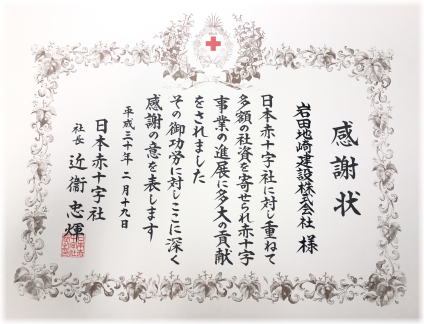 感謝状
岩田地崎建設株式会社 様
日本赤十字社に対し重ねて
多額の社資を寄せられ赤十字
事業の進展に多大の貢献
をされました
その御功労に対しここに深く
感謝の意を表します
平成三十年 二月十九日
日本赤十字社
社長 近衞忠煇